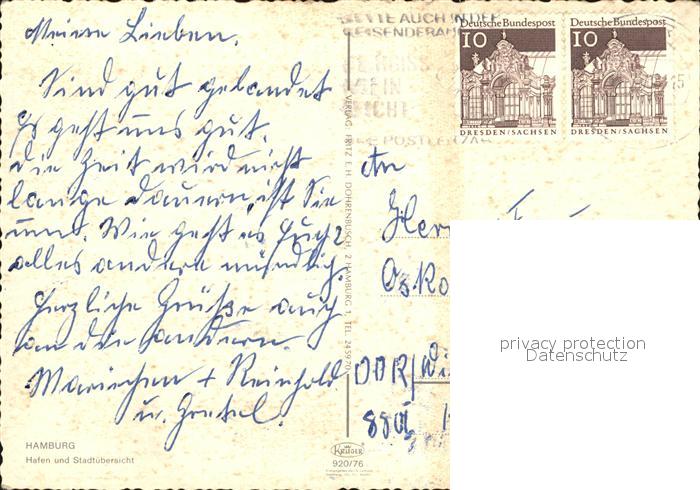 Meine Lieben,
Sind gut gelandet
Es geht uns gut.
die Zeit wird nicht
lange dauern, ist Sie
um. Wie geht es Euch?
alles andere mündlich.
Herzliche Grüße auch
an die andern.
Mariechen + Reinhold
u. Gretel.
HAMBURG
Hafen und Stadtübersicht
VERLAG FRITZ E. H. DOHRENBUSCH, 2 HAMBURG 1, TEL. 245970
KRÜGER
920/76
HEUTE AUCH IN DER
Deutsche Bundespost
10
DRESDEN/SACHSEN
Deutsche Bundespost
10
DRESDEN/SACHSEN
An
Herr
Os
DDR/
880
privacy protection
Datenschutz